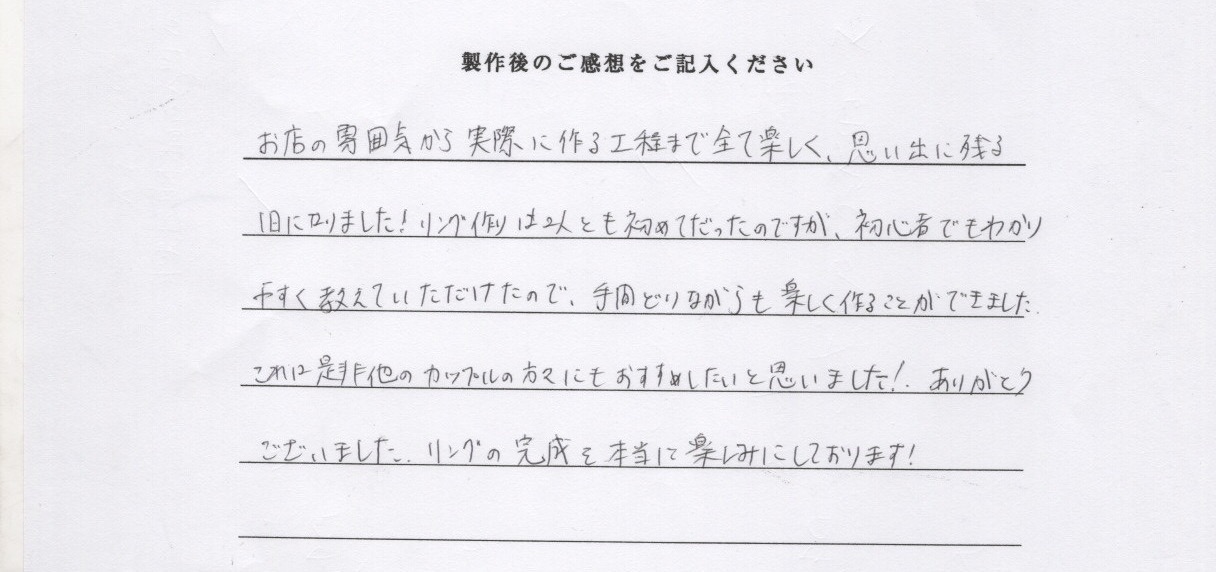 製作後のご感想をご記入ください
お店の雰囲気から実際に作る工程まで全て楽しく、思い出に残る
1日になりました!リング作りは2人とも初めてだったのですが、初心者でもわかり
やすく教えていただけたので、手間どりながらも楽しく作ることができました。
これは是非他のカップルの方々にもおすすめしたいと思いました!。ありがとう
ございました。リングの完成を本当に楽しみにしております!